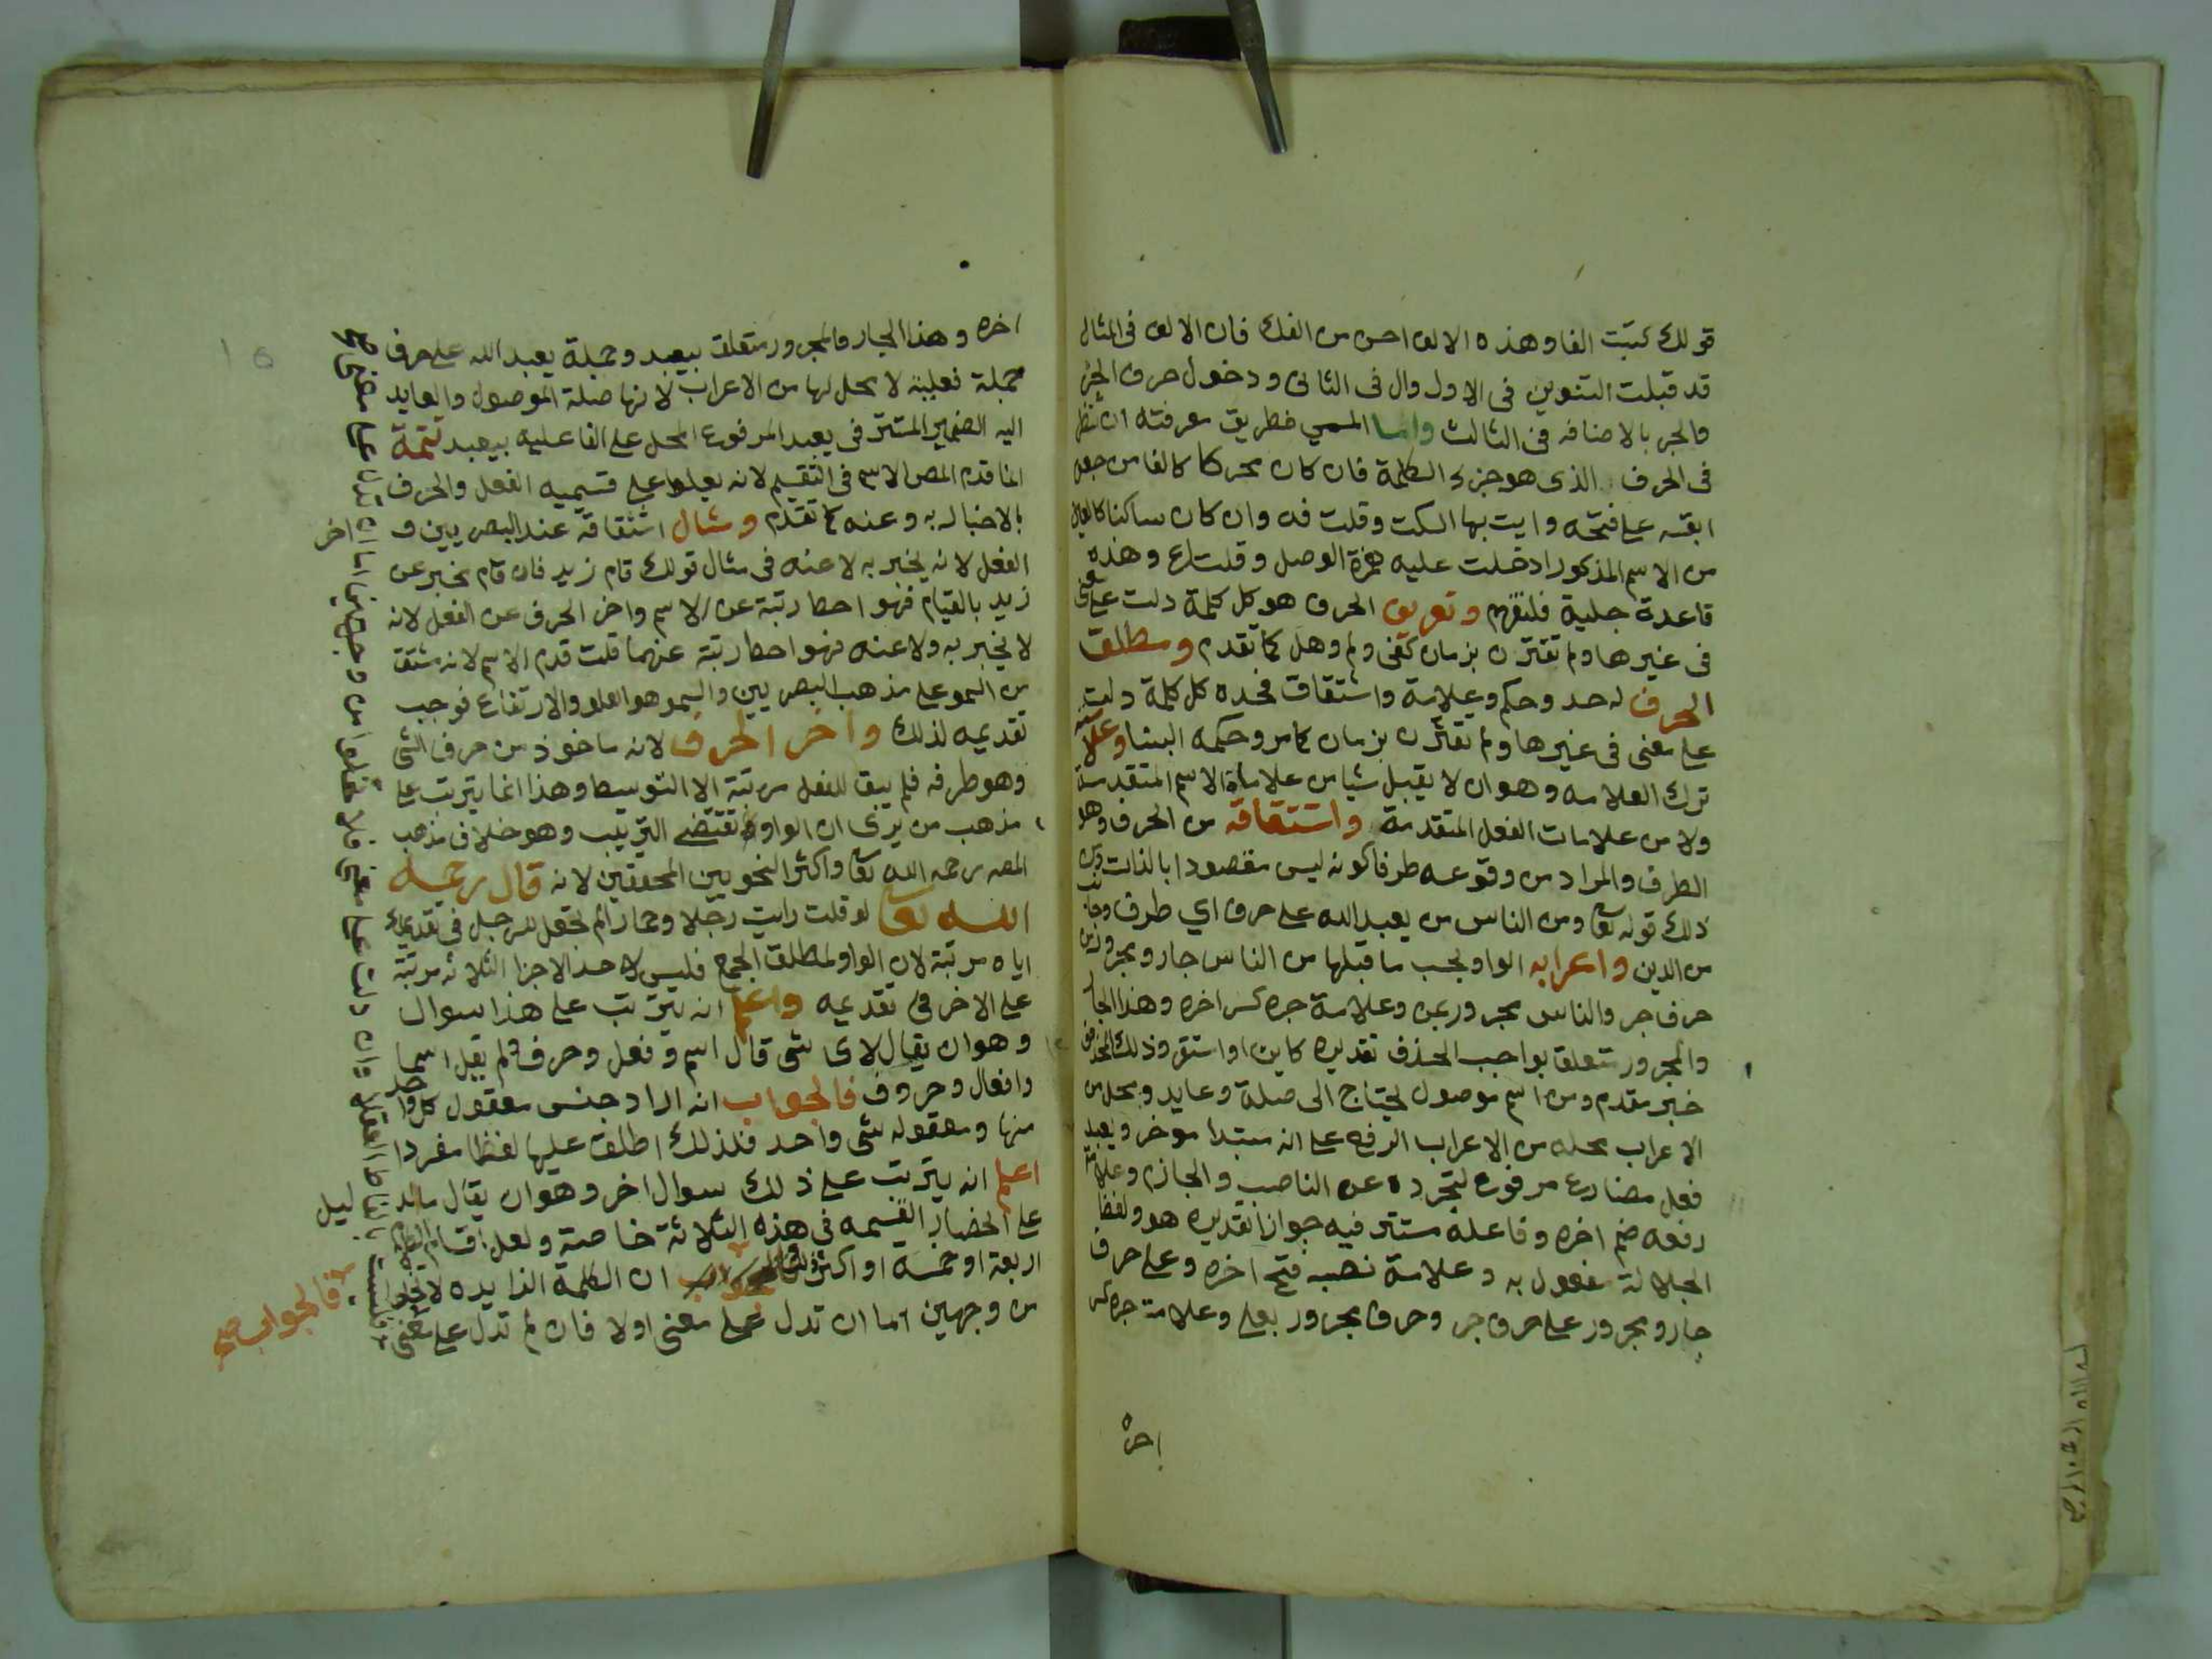 قولك كتبت الفا وهذه الالف احسن من الفك فان الالف فى المثال
قد قبلت التنوين فى الاول وال فى الثانى ودخول حرف الجر
والجر بالاضافه فى الثالث واما المسمي فطريق معرفته ان تنظر
فى الحرف الذى هو جزء الكلمة فان كان محركا كالفا من جعفر
ابقته على فتحه وايت بها السكت وقلت فه وان كان ساكنا كالعين
من الاسم المذكور ادخلت عليه همزة الوصل وقلت اع وهذه
قاعدة جلية فلتفهم وتعريف الحرف هو كل كلمة دلت على معنى
فى غيرها ولم تقترن بزمان كفى ولم وهل كما تقدم ومطلق
الحرف له حد وحكم وعلامة واشتقاق فحده كل كلمة دلت
على معنى فى غيرها ولم تقترن بزمان كما مر وحكمه البنا وعلامته
ترك العلامه وهو ان لا يقبل شيا من علاماة الاسم المتقدمة
ولا من علامات الفعل المتقدمة واشتقاقه من الحرف وهو
الطرف والمراد من وقوعه طرفا كونه ليس مقصودا بالذات ومن
ذلك قوله تعا ومن الناس من يعبد الله على حرف اي طرف وجانب
من الدين واعرابه الواو بحسب ما قبلها من الناس جار ومجرور من
حرف جر والناس مجرور بمن وعلامة جره كسر اخره وهذا الجار
والمجرور متعلق بواجب الحذف تقديره كاين او استقر وذلك المحذوف
خبر مقدم ومن اسم موصول يحتاج الى صلة وعايد ومحل من
الاعراب محله من الاعراب الرفع على انه مبتدا موخر ويعبد
فعل مضارع مرفوع لتجرده عن الناصب والجازم وعلامة
رفعه ضم اخره وفاعله مستتر فيه جوازا تقديره هو ولفظ
الجلالة مفعول به وعلامة نصبه فتح اخره وعلى حرف
جار ومجرور على حرف جر وحرف مجرور بعلى وعلامة جره كسر
اخره
اخره وهذا الجار والمجرور متعلق بيعبد وجملة يعبد الله على حرف
جملة فعلية لا محل لها من الاعراب لانها صلة الموصول والعايد
اليه الضمير المستتر فى يعبد المرفوع المحل على الفاعليه بيعبد تتمة
انما قدم المص الاسم فى التقسيم لانه يعلوا على قسيميه الفعل والحرف
بالاخبار به وعنه كما تقدم ومثال اشتقاقه عند البصريين و اخر
الفعل لانه يخبر به لا عنه فى مثال قولك قام زيد فان قام يخبر عن
زيد بالقيام فهو احط رتبة عن الاسم واخر الحرف عن الفعل لانه
لا يخبر به ولا عنه فهو احط رتبة عنهما قلت قدم الاسم لانه مشتق
من السمو على مذهب البصريين والسمو هو العلو والارتفاع فوجب
تقديمه لذلك واخر الحرف لانه ماخوذ من حرف الشى
وهو طرفه فلم يبق للفعل مرتبة الا التوسيط وهذا انما يترتب على
مذهب من يرى ان الواو تقتضي الترتيب وهو خلاف مذهب
المص رحمه الله تعا واكثر النحويين المحققين لانه قال رحمه
الله تعا لو قلت رايت رجلا وحمارا لم تجعل للرجل فى تقديمك
اياه مرتبة لان الواو لمطلق الجمع فليس لاحد الاجزا الثلاثه مرتبة
على الاخر فى تقديمه واعلم انه يترتب على هذا سوال
وهو ان يقال لاى شى قال اسم وفعل وحرف ولم يقل اسما
وافعال وحروف فالجواب انه اراد جنس معقول كل واحد
منها ومعقوله شى واحد فلذلك اطلق عليها لفظا مفردا
اعلم انه يترتب على ذلك سوال اخر وهو ان يقال ما الد ليل
على انحصار القسيمه فى هذه الثلاثة خاصة ولعل اقسام الكلام
اربعة او خمسه او اكثر ان الكلمة الزايده لا تخلو
من وجهين اما ان تدل على معنى اولا فان لم تدل على معنى
فالجواب صح